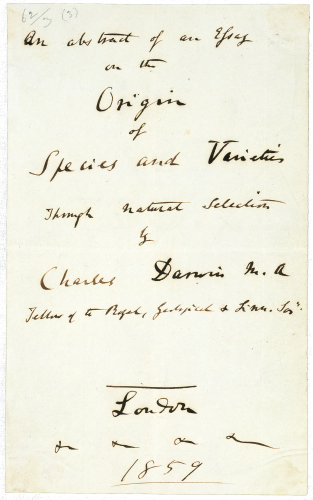 62/3 (3)
An abstract of an Essay
on the
Origin
of
Species and Varieties
Through Natural Selection
by
Charles Darwin M. A
Fellow of the Royal, Geological & Linn. Soc.
London
&c &c &c &c
1859